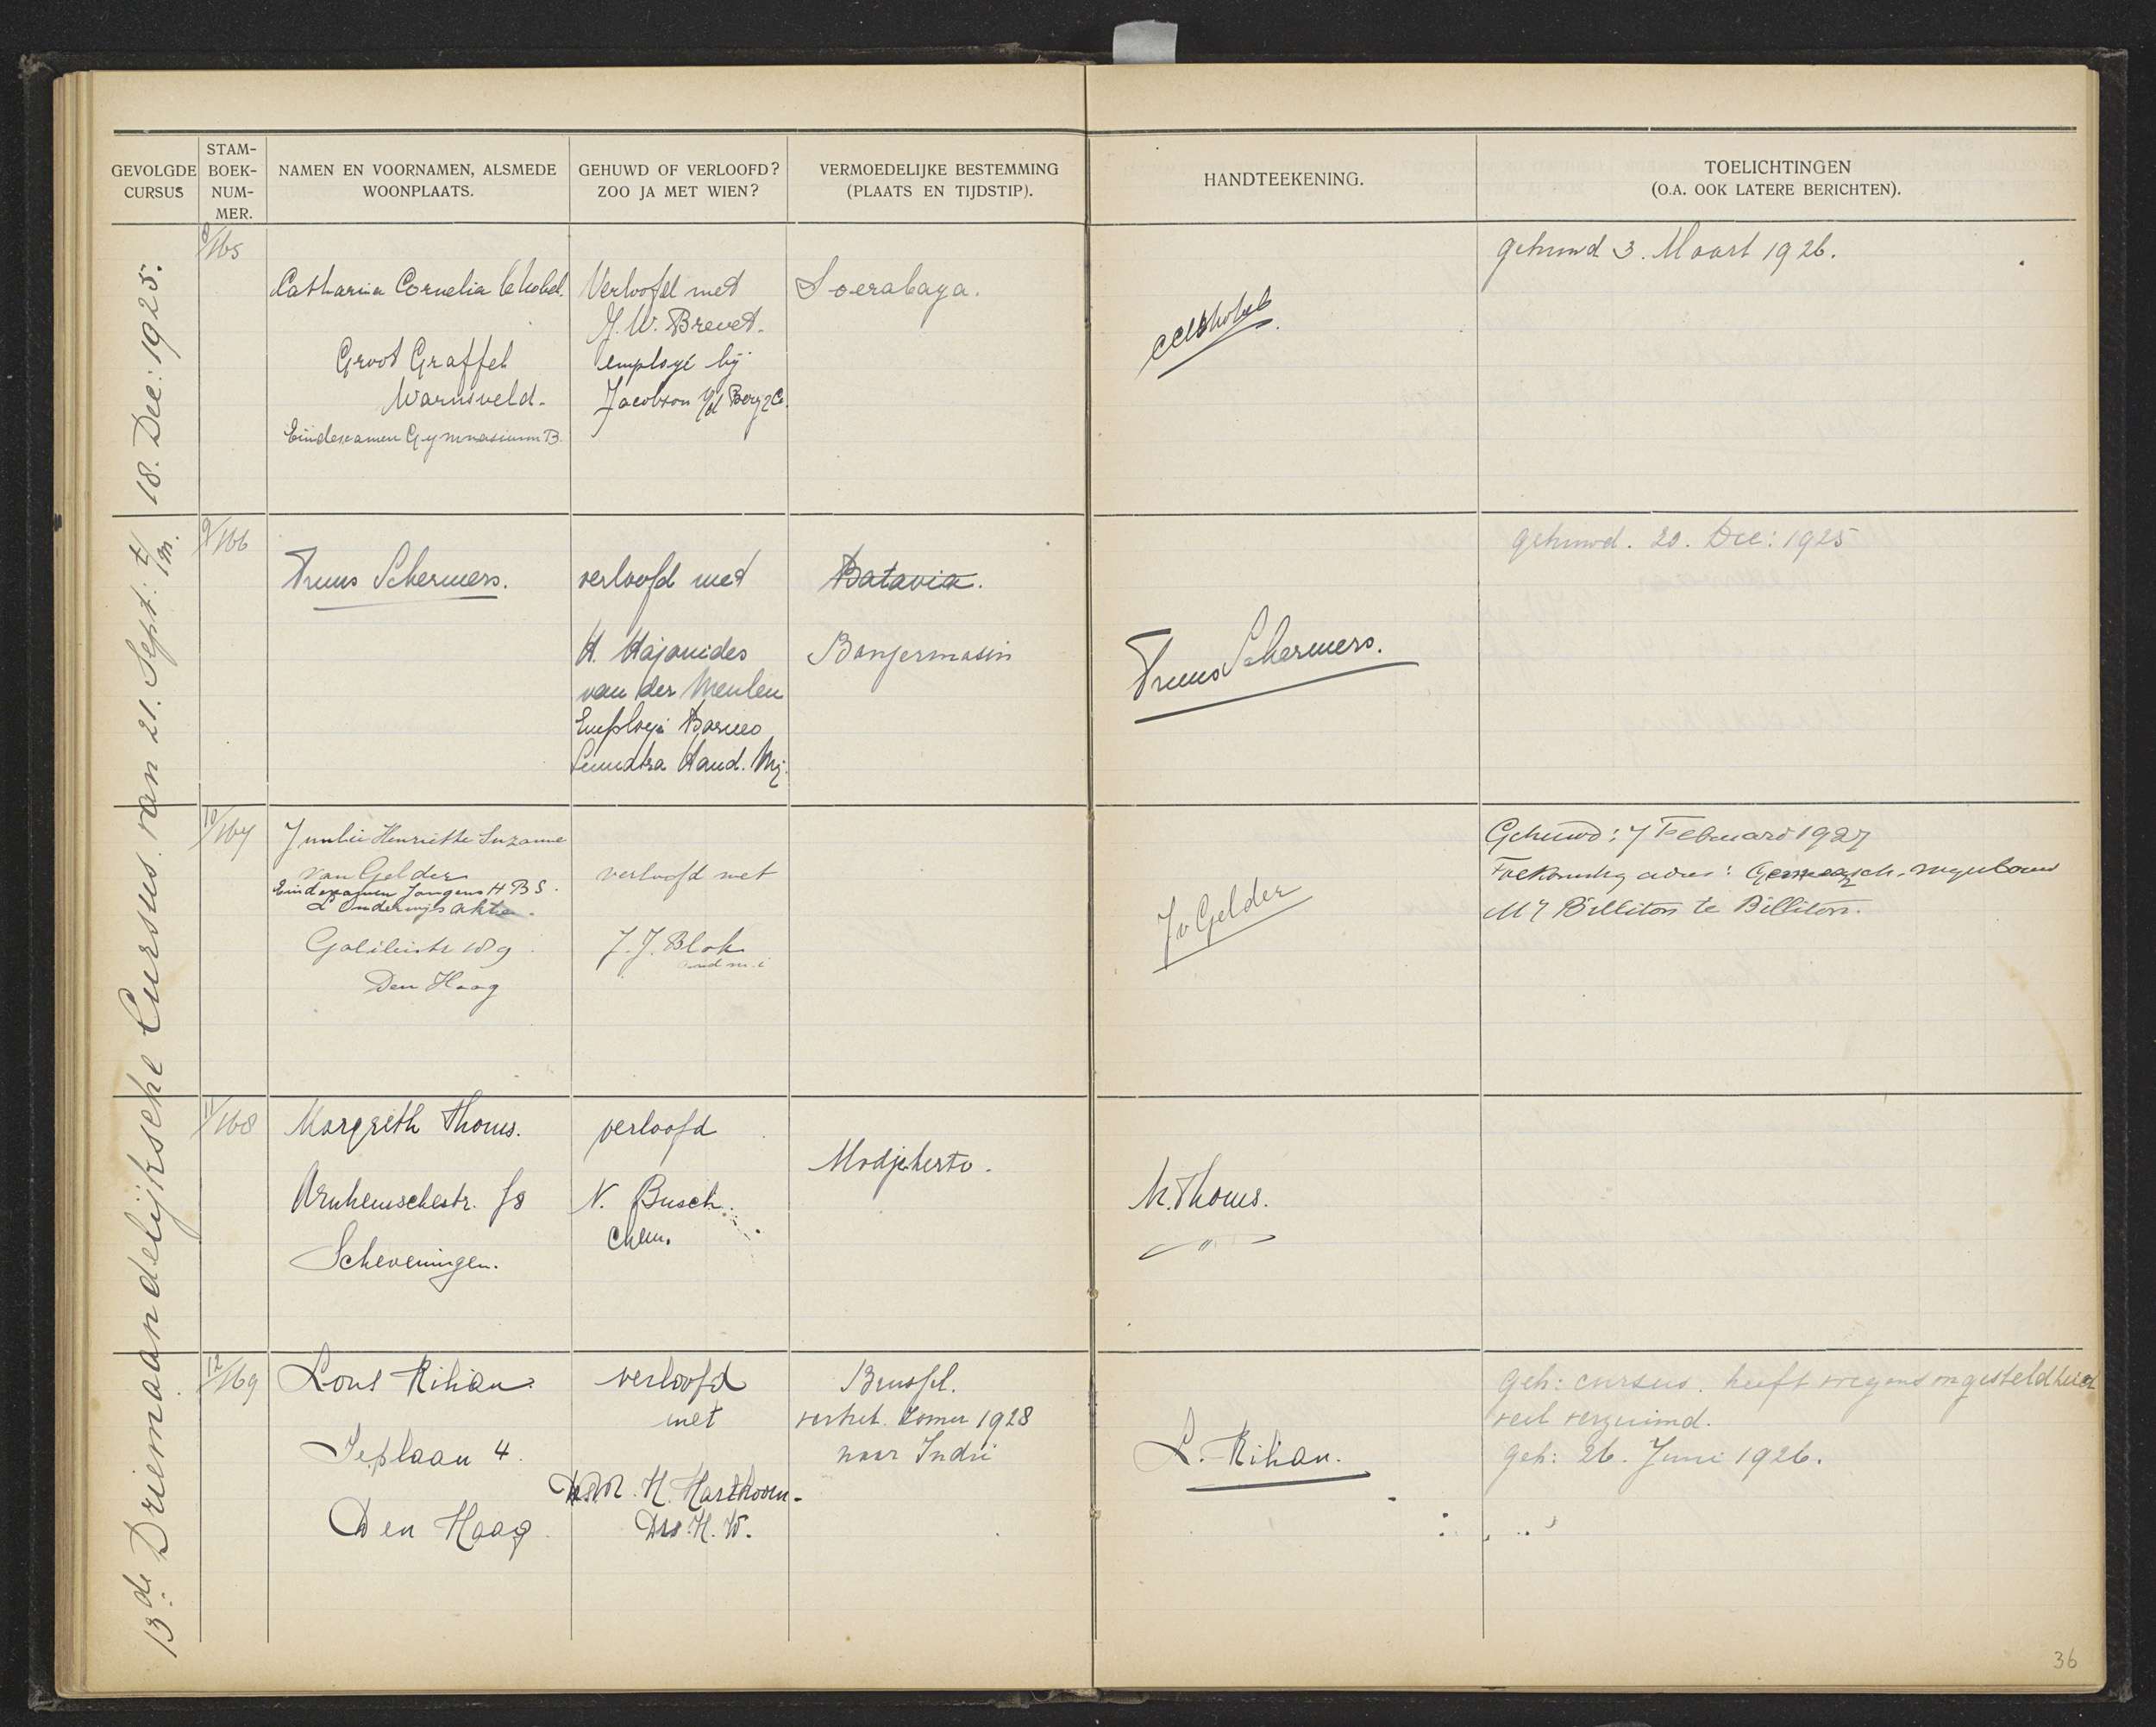 GEVOLGDE
CURSUS
STAM-
BOEK-
NUM-
MER.
NAMEN EN VOORNAMEN, ALSMEDE
WOONPLAATS.
GEHUWD OF VERLOOFD?
ZOO JA MET WIEN?
VERMOEDELIJKE BESTEMMING
(PLAATS EN TIJDSTIP).
HANDTEEKENING.
TOELICHTINGEN
(O.A. OOK LATERE BERICHTEN).
13de Driemaandelijksche Cursus van 21. Sept: t/m. 18. Dec: 1925.
8/165
Catharina Cornelia
Groot Graffel
Warnsveld.
Eindexamen Gymnasium B.
Verloofd met
J. W. Brevet.
employé bij
Jacobson v/d Berg & Co.
Soerabaya.
gehuwd 3. Maart 1926.
9/166
Truus Schermers.
verloofd met
H. Hajonides
van der Meulen
Employé Borneo
Sumatra Hand. Mij.
Batavia.
Banjermasin
Truus Schermers.
gehuwd. 20. Dec: 1925
10/167
Henriette Suzanne
van Gelder
Eindexamen Jongens H B S.
L Onderwijs akte.
Galileistr 109
Den Haag
verloofd met
J. J. Blok
J v Gelder
Gehuwd: 7 Februari 1927
Toekomstig adres: Gemeensch. mijnbouw
Mij Billiton te Billiton.
11/168
Margreth Thoms.
Arnhemschestr. 78
Scheveningen.
verloofd
N. Busch.
Chem.
Modjokerto.
M. Thoms.
12/169
Lous Kilian.
Jeplaan 4.
Den Haag.
verloofd
met
H. Harthoorn.
Drs. H. W.
Brussel.
vertrek Zomer 1928
naar Indië
L. Kilian.
geh: cursus. heeft wegens ongesteldheid
veel verzuimd.
geh: 26. Juni 1926.
36